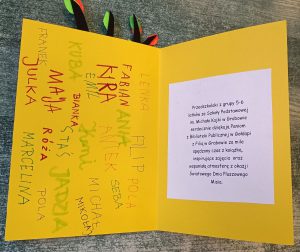 LENKA
FILIP
POLA
FABIAN
ANIA
KIRA
EMIL
ANTEK
SEBA
BIANKA
MICHAŁ
MIKOŁAJ
KUBA
STAŚ
JADZIA
MAJA
RÓŻA
POLA
FRANEK
JULKA
MARCELINA
Przedszkolaki z grupy 5-6
latków ze Szkoły Podstawowej
im. Michała Kajki w Grabowie
serdecznie dziękują Paniom
z Biblioteki Publicznej w Gołdapi
z Filią w Grabowie za mile
spędzony czas z książką,
inspirujące zajęcia oraz
wspaniałą atmosferę z okazji
Światowego Dnia Pluszowego
Misia.